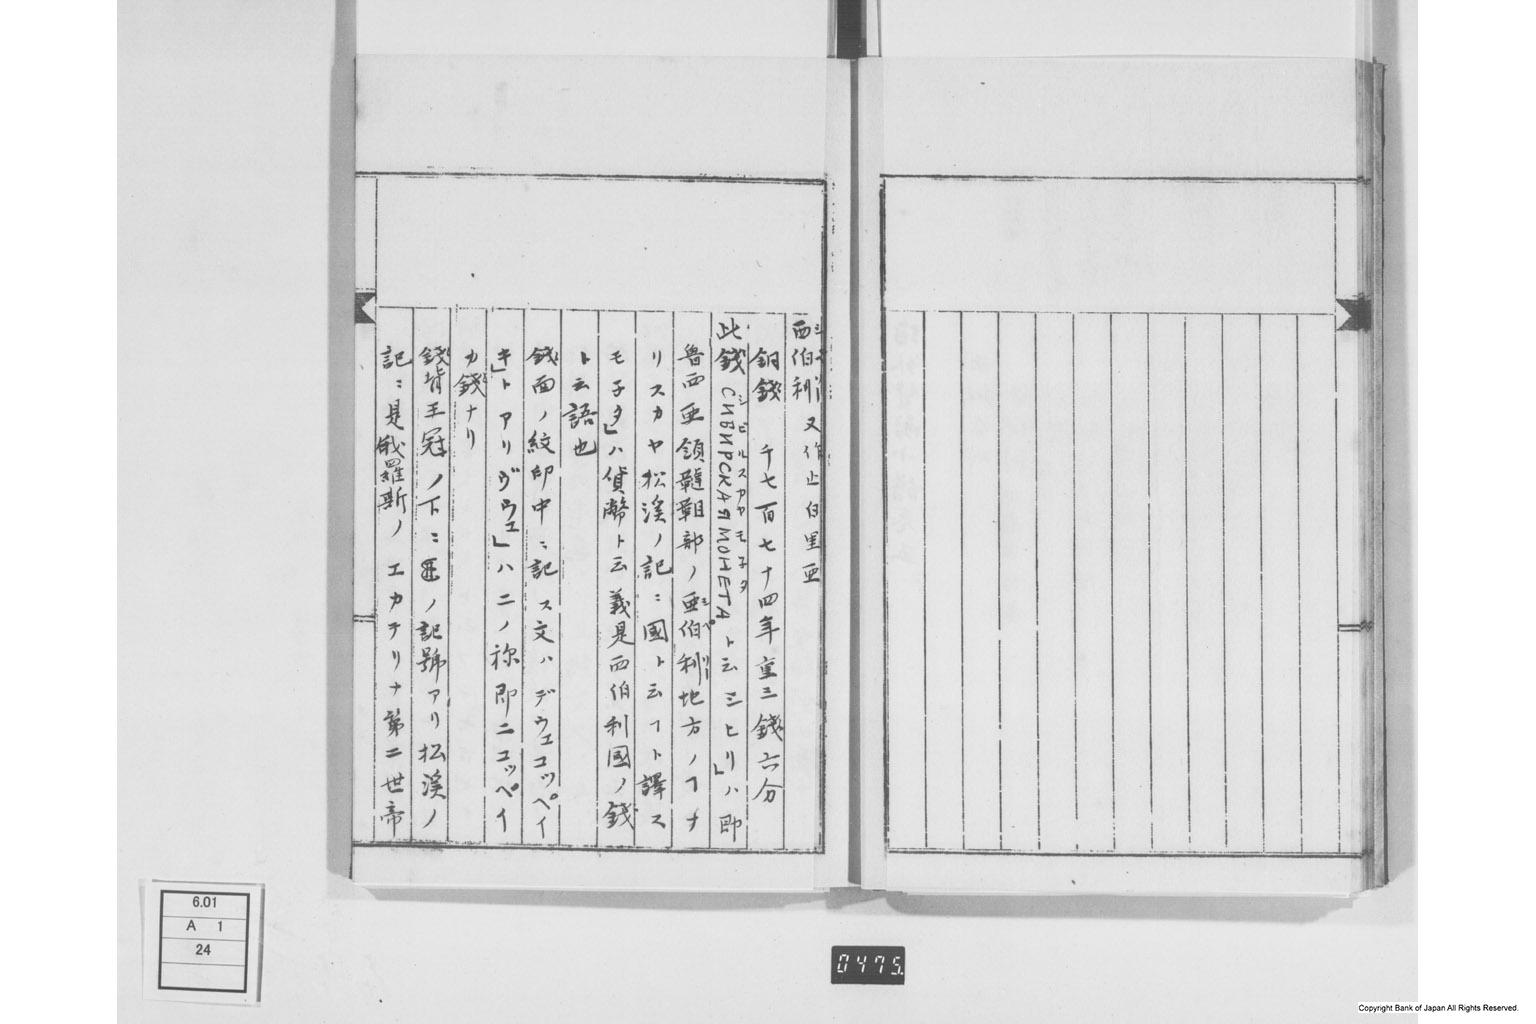 西伯利 又作止白里亜
シベリー
銅錢 千七百七十四年重三錢六分
此錢 СИВИРСКАЯ МОНЕТА ト云シヒリ」ハ即
シビルスカヤ モ子タ
魯西亜領韃靼部ノ亜伯利地方ノフナ
シベリー
リスカヤ松溪ノ記ニ國ト云フト譯ス
モ子タ」ハ貨幣ト云義是西伯利國ノ錢
ト云語也
錢面ノ紋印中ニ記ス文ハデウェコッペイ
キ」トアリヴウェ」ハニノ称即ニコッペイ
カ錢ナリ
錢背王冠ノ下ニ ノ記號アリ松溪ノ
記ニ是俄羅斯ノエカテリナ第二世帝
6.01
A 1
24
0475.
Copyright Bank of Japan All Rights Reserved.